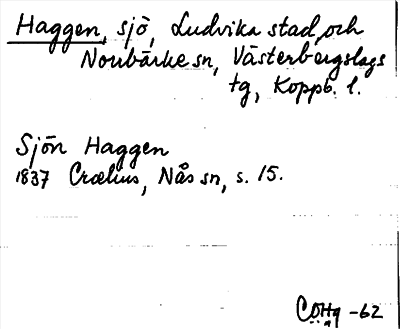 Haggen, sjö, Ludvika stad och
Norrbärke sn, Västerbergslags
tg, Koppb. l.
Sjön Haggen
1837 Crælius, Nås sn, s. 15.
CÖHg -62